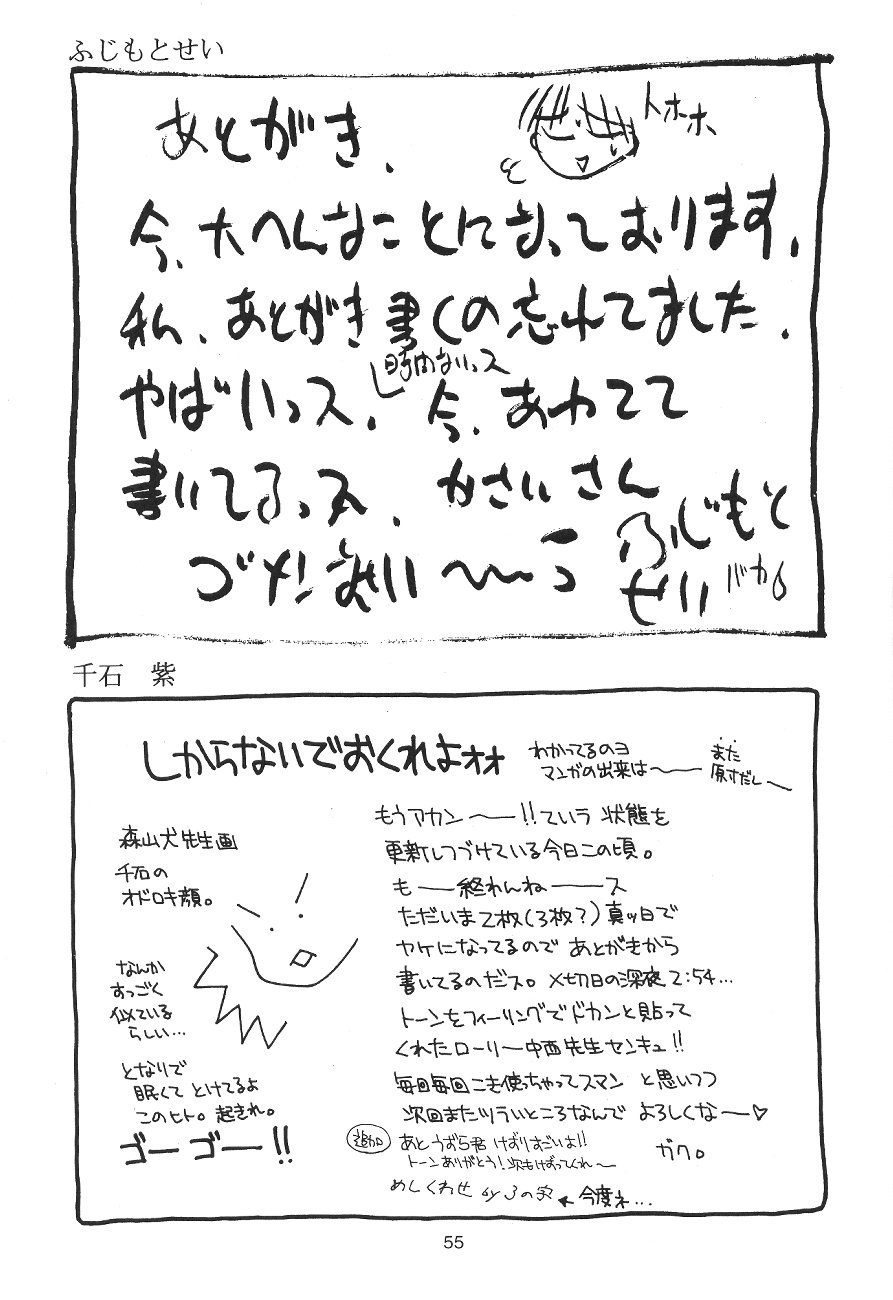 ふじもとせい
あとがき、
トホホ、
今、大へんなことになっております。
私、あとがき書くの忘れてました。
時間ないっス
やばいっス。今、あわてて
書いてるっス、かさいさん
ゴメンなさい〜〜っ
ふじもと
せい
バカ
千石 紫
しからないでおくれよォォ
わかってるのヨ
マンガの出来は〜――
また
原寸だし〜
森山犬先生画
千石の
オドロキ顔。
なんか
すっごく
似ている
らしい…
となりで
眠くてとけてるよ
このヒト。起きれ。
ゴーゴー!!
もうアカン〜―!!ていう状態を
更新しつづけている今日この頃。
も――終わんね――ス
ただいま2枚(3枚?)真ッ白で
ヤケになってるので あとがきから
書いてるのだス。〆切日の深夜2:54…
トーンをフィーリングでドカンと貼って
くれたローリー中西先生センキュ!!
毎回毎回こき使っちゃってスマン と思いつつ
次回またツラいところなんで よろしくな〜♡
追加
あとうずら君 けずりすごいよ!!
トーンありがとう!次もけずってくれ〜
ガク。
めしくわせ by
今度ネ…
55